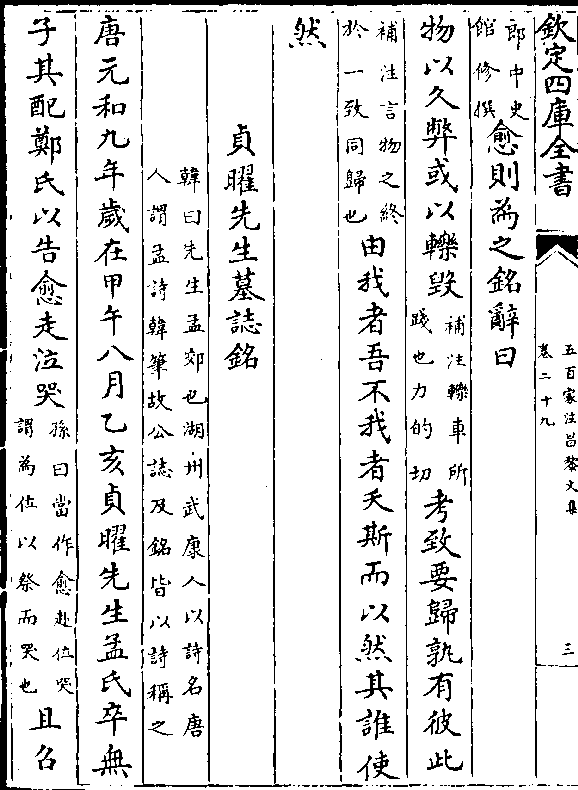 欽定四庫全書
五百家注昌黎文集
卷二十九
三
郎中史
館修撰
愈則為之銘辭曰
物以久弊或以轢毀
補注轢車所
踐也力的切
考致要歸孰有彼此
補注言物之終
於一致同歸也
由我者吾不我者天斯而以然其誰使
然
貞曜先生墓誌銘
韓曰先生孟郊也湖州武康人以詩名唐
人謂孟詩韓筆故公誌及銘皆以詩稱之
唐元和九年歲在甲午八月乙亥貞曜先生孟氏卒無
子其配鄭氏以告愈走泣哭
孫曰當作愈赴位哭
謂為位以祭而哭也
且召